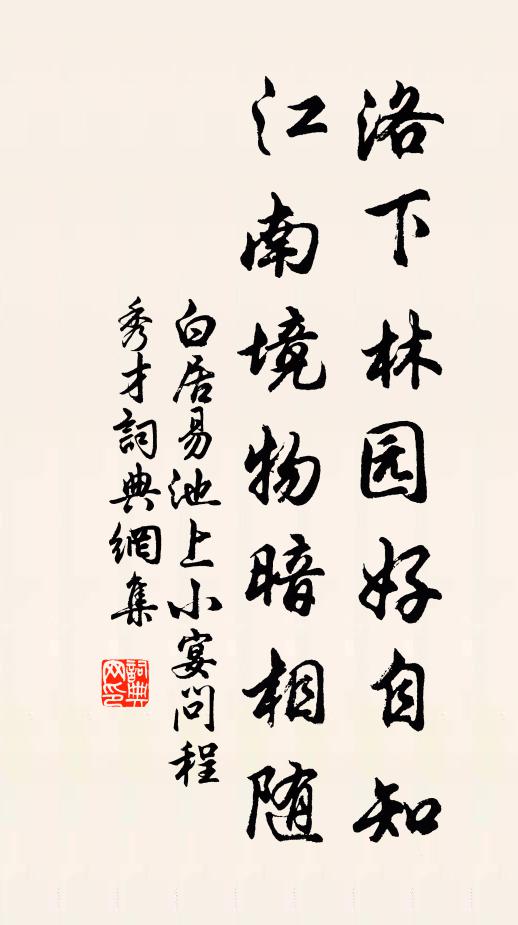 洛下林园好自知
江南境物暗相随
白居易池上小宴问程
秀才詞典網集
詞典网印